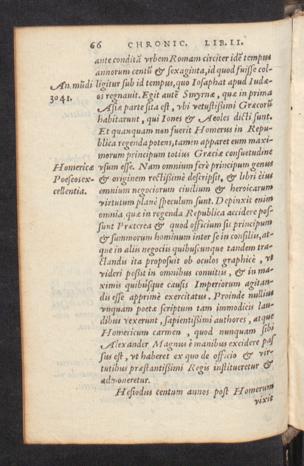 66 CHRONIC. LIB. II.
ante conditã vrbem Romam circiter idẽ tempus
annorum centũ & sexaginta, id quod fuisse col-
An. mũdi ligitur sub id tempus, quo Iosaphat apud Iudæ-
3041. os regnauit. Egit autẽ Smyrnæ, quæ in prima
Asiæ parte sita est, vbi vetustissimi Græcorũ
habitarunt, qui Iones & Aeoles dicti sunt.
Et quanquam non fuerit Homerus in Repu-
blica regenda potens, tamen apparet eum maxi-
morum principum totius Græciæ consuetudine
Homericæ vsum esse. Nam omnium ferè principum genus
Poeseos ex- & originem rectissimè descripsit, & libri eius
cellentia. omnium negociorum ciuilium & heroicarum
virtutum planè speculum sunt. Depinxit enim
omnia quæ in regenda Republica accidere pos-
sunt Prætereà & quod officium sit principum
& summorum hominum inter se in consiliis, at-
que in aliis negociis quibuscunque tandem tra-
ctandis ita proposuit ob oculos graphicè, vt
videri possit in omnibus conuitius, & in ma-
ximis quibusque causis Imperiorum agitan-
dis esse apprimè exercitatus. Proinde nullius
vnquam poetæ scriptum tam immodicis lau-
dibus vexerunt, sapientissimi authores, atque
Homericum carmen, quod nunquam sibi
Alexander Magnus è manibus excidere pas-
sus est, vt haberet ex quo de officio & vir-
tutibus præstantissimi Regis institueretur &
admoneretur.
Hesiodus centum annos post Homerum
vixit